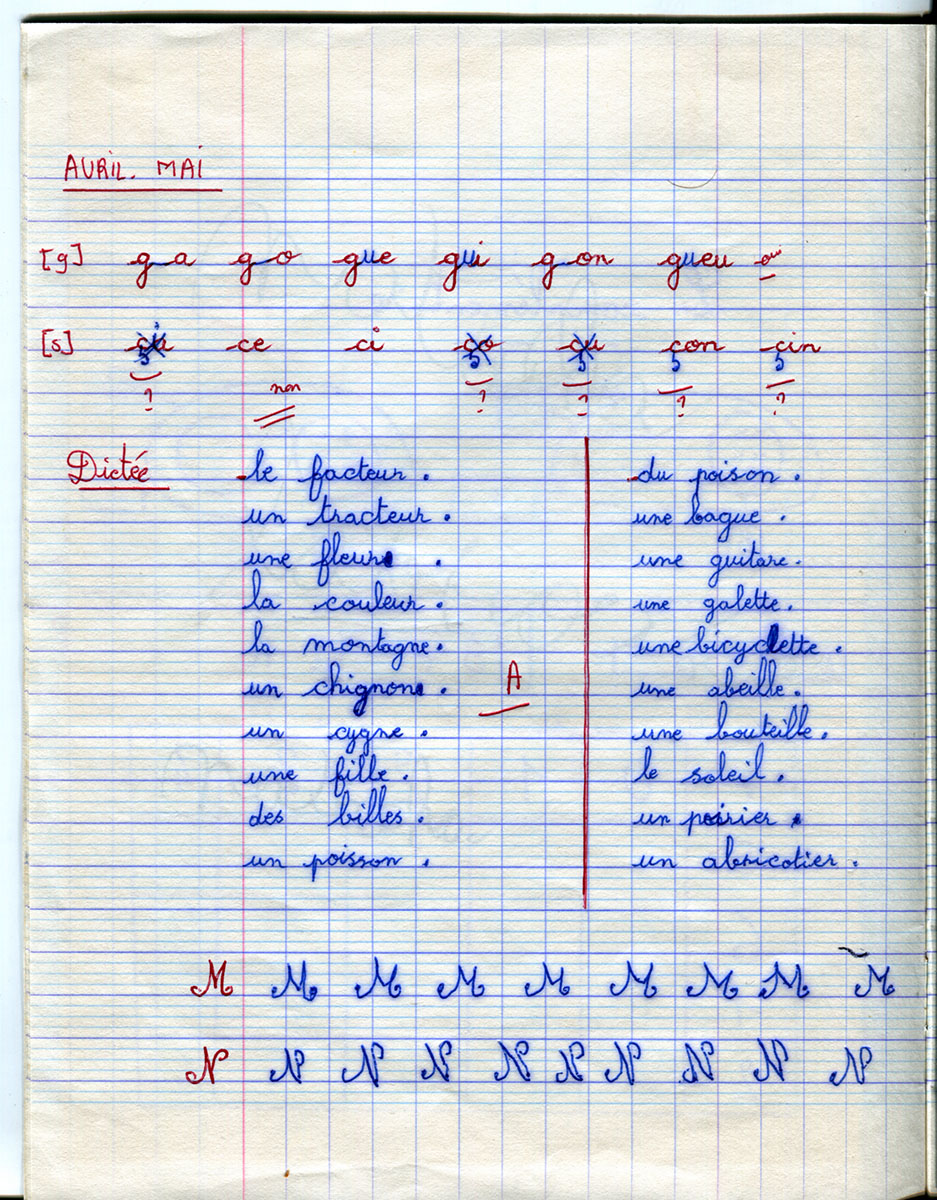 AVRIL. MAI
[g] ga go gue gui gon gueu
[s] ça ce ci ço çu çon çin
? non ? ? ? ?
Dictée
le facteur.
un tracteur.
une fleur .
la couleur.
la montagne.
un chignon .
un cygne.
une fille.
des billes.
un poisson .
A
du poison .
une bague .
une guitare.
une galette.
une bicyclette .
une abeille.
une bouteille.
le soleil.
un poirier .
un abricotier .
M M M M M M M M M
N N N N N N N N N